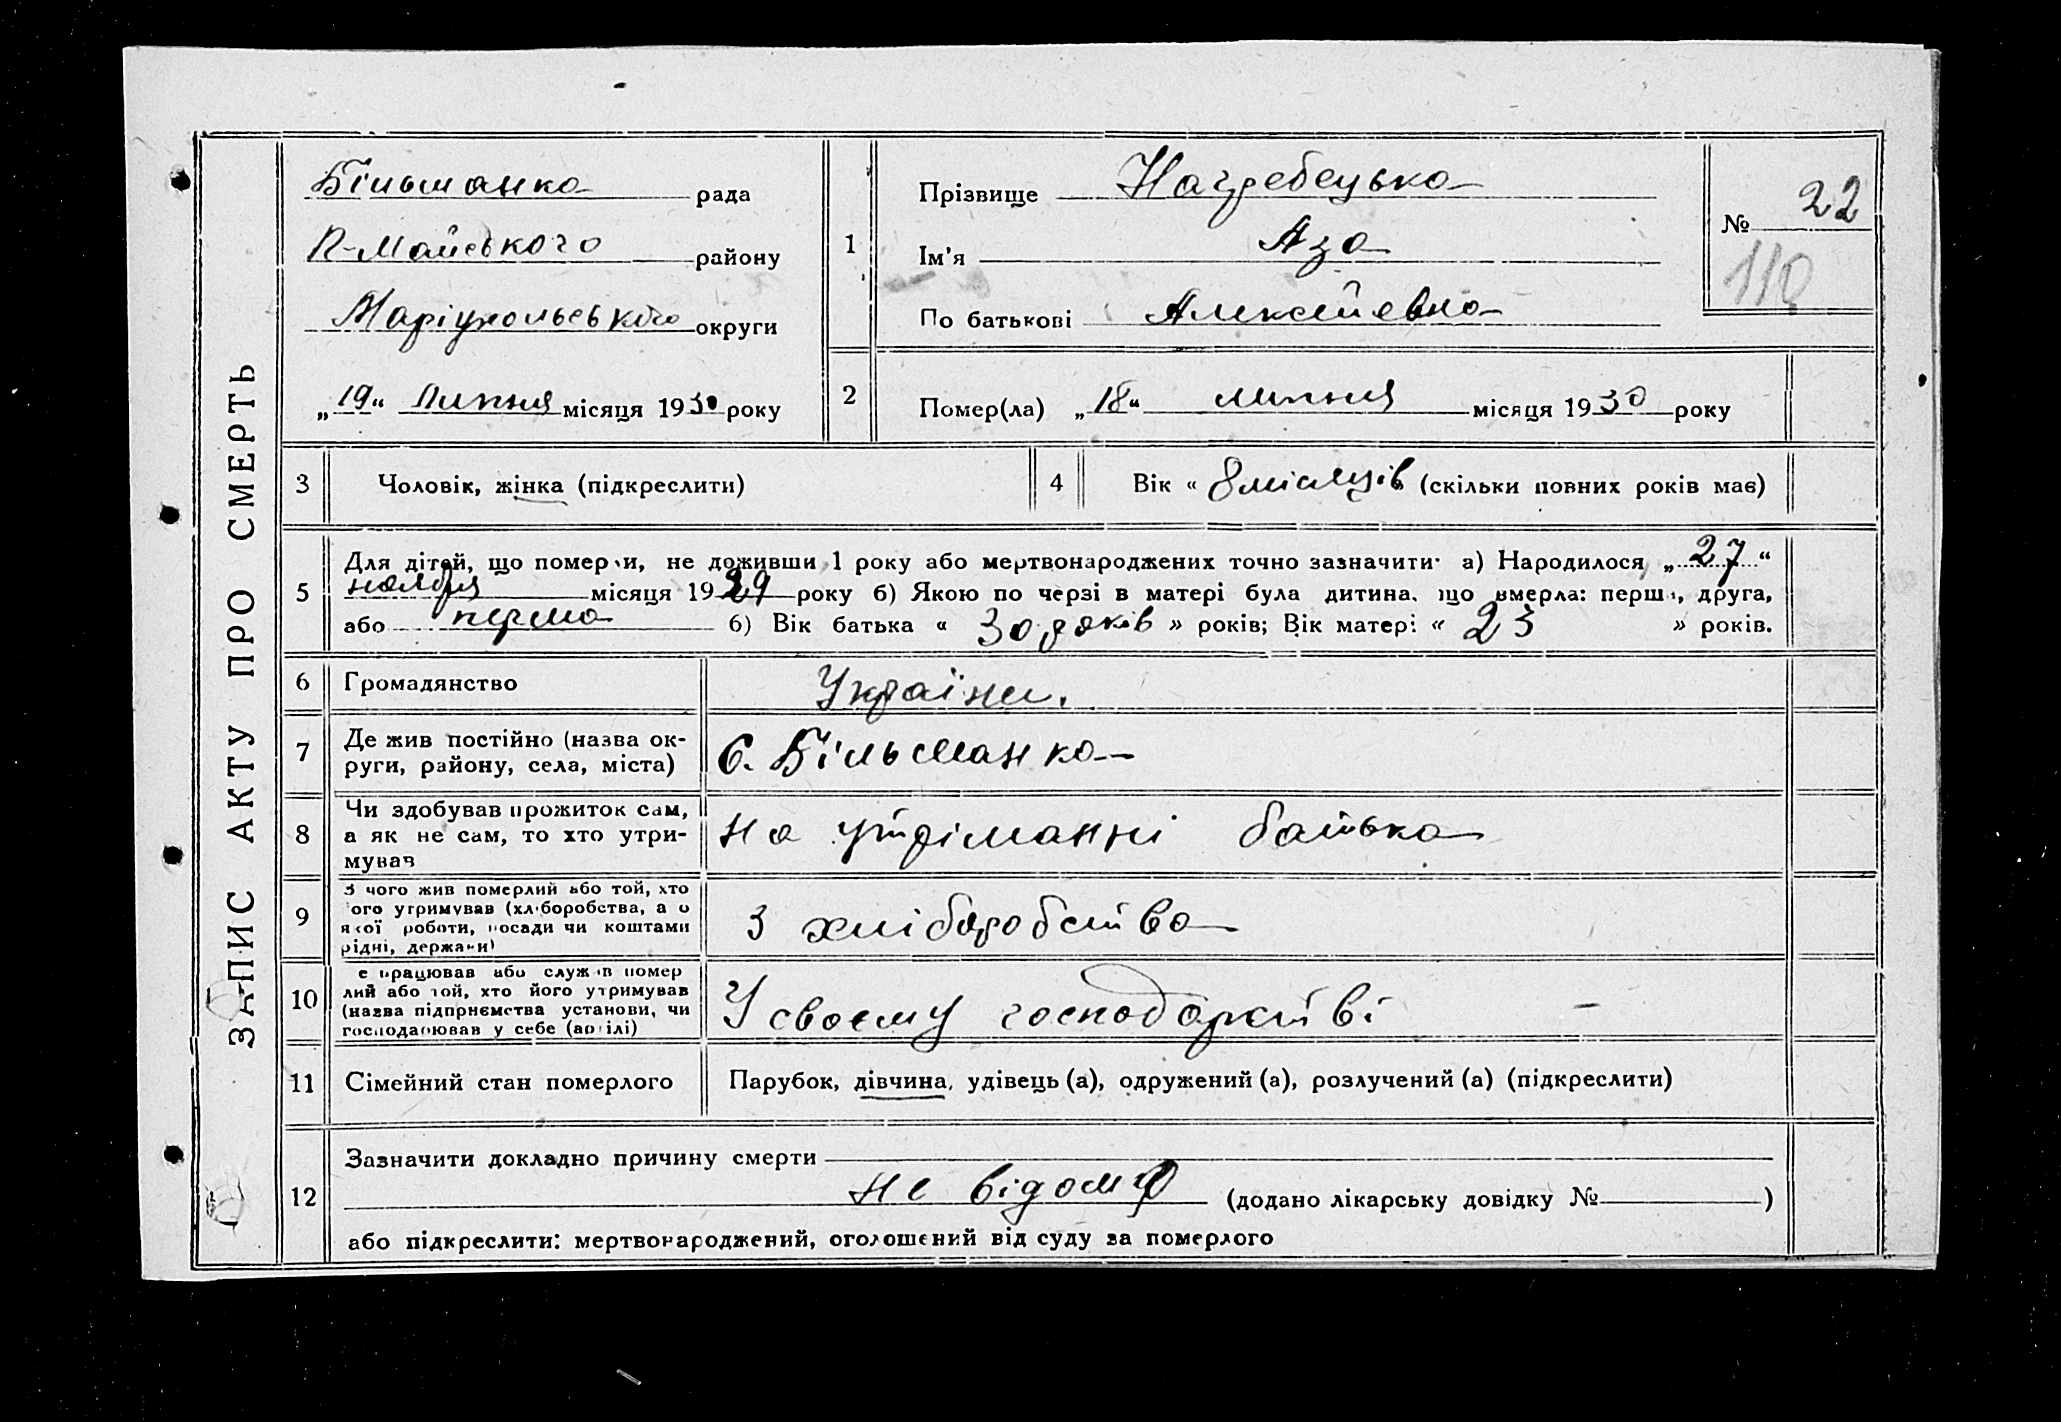 ЗАПИС АКТУ ПРО СМЕРТЬ
Більманка рада
П-Майського району
Маріупольського округи
„19“ Липня місяця 1930 року
1
Прізвище Нагребецька
Ім'я Аза
По батькові Алексейевна
№ 22
110
2
Помер(ла) „18“ липня місяця 1930 року
3 Чоловік, жінка (підкреслити)
4 Вік « 8 місяців » (скільки повних років має)
5 Для дітей, що померли, не доживши 1 року або мертвонароджених точно зазначити: а) Народилося „27“
ноября місяця 1929 року б) Якою по черзі в матері була дитина, що вмерла: перша, друга,
або перша б) Вік батька « 30 років » років; Вік матері « 23 » років.
6 Громадянство Україна.
7 Де жив постійно (назва ок-
руги, району, села, міста) С. Більманка
8 Чи здобував прожиток сам,
а як не сам, то хто утри-
мував На утріманні батька
9 З чого жив померлий або той, хто
його утримував (хліборобства, а о
якої роботи, посади чи коштами
рідні, держави) З хліборобства
10 е працював або служив помер
лий або той, хто його утримував
(назва підприємства установи, чи
господарював у себе (артілі) У своєму господарстві –
11 Сімейний стан померлого Парубок, дівчина, удівець (а), одружений (а), розлучений (а) (підкреслити)
12 Зазначити докладно причину смерти
не відома (додано лікарську довідку № )
або підкреслити: мертвонароджений, оголошений від суду за померлого